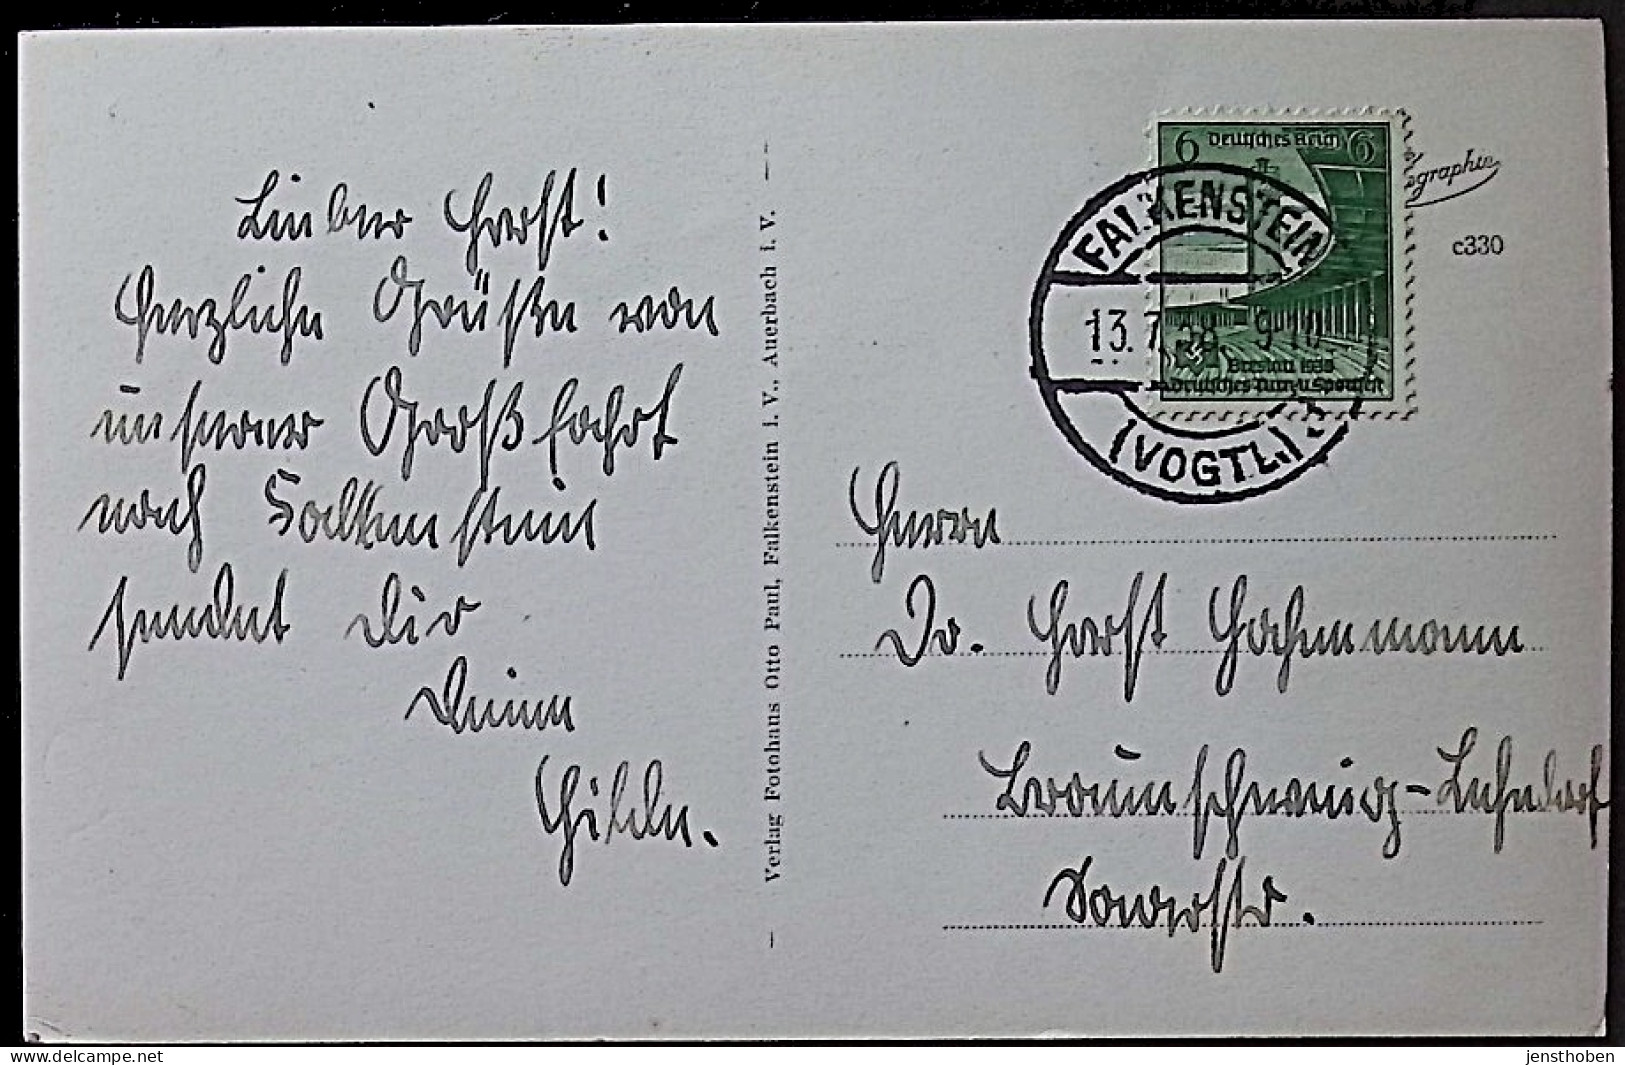 Lieber Horst!
Herzliche Grüße von
unserer Großfahrt
nach Falkenstein
sendet Dir
Deine
Hilde.
Verlag Fotohaus Otto Paul, Falkenstein i. V., Auerbach i. V.
6 Deutsches Reich 6
Breslau 1938
Deutsches Turn-u. Sportfest
FALKENSTEIN
13.7.38. 9-10
(VOGTL.)
ographie
c330
Herrn
Dr. Horst
Braunschweig-Lehndorf
Saarstr.
Hosted by DELCAMPE
jensthoben